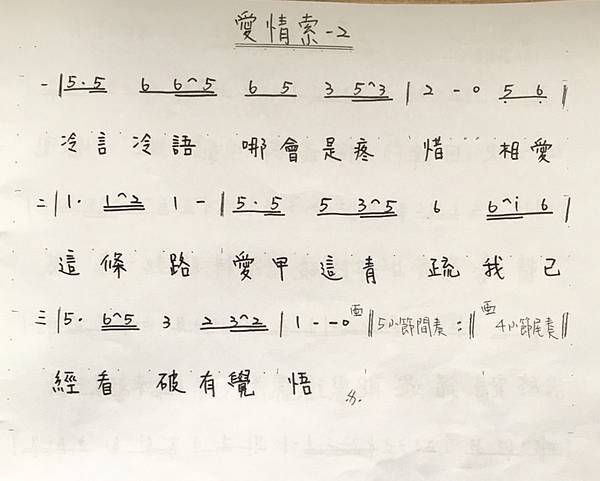 愛情索-2
一|5·5 6 6^5 6 5 3 5^3|2 - 0 5 6|
冷言冷語 哪會是疼 惜 相愛
二|1· 1^2 1 -|5·5 5 3^5 6 6^i 6|
這條路 愛甲這青 疏我已
三|5· 6^5 3 2 3^2|1 - - 0 西||5小節間奏:|| 西 4小節尾奏||
經看 破有覺 悟